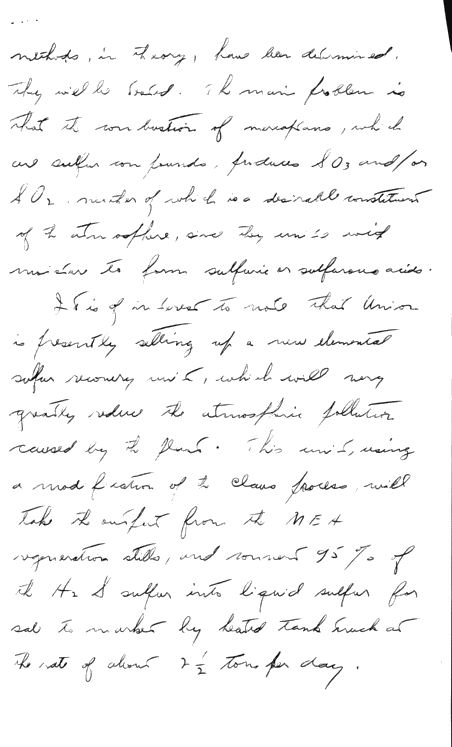 methods, in theory, have been determined.
They will be tested. The main problem is
that the combustion of mercaptans, which
are sulfur compounds, produces SO3 and/or
SO2. neither of which is a desirable constituent
of the atmosphere, since they unite with
moisture to form sulfuric or sulfurous acids.
It is of interest to note that Union
is presently setting up a new elemental
sulfur recovery unit, which will very
greatly reduce the atmospheric pollution
caused by the plant. This unit, using
a modification of the Claus process, will
take the output from the MEA
regeneration stills, and convert 95% of
the H2S sulfur into liquid sulfur for
sale to market by heated tank truck at
the rate of about 2 1/2 tons per day.